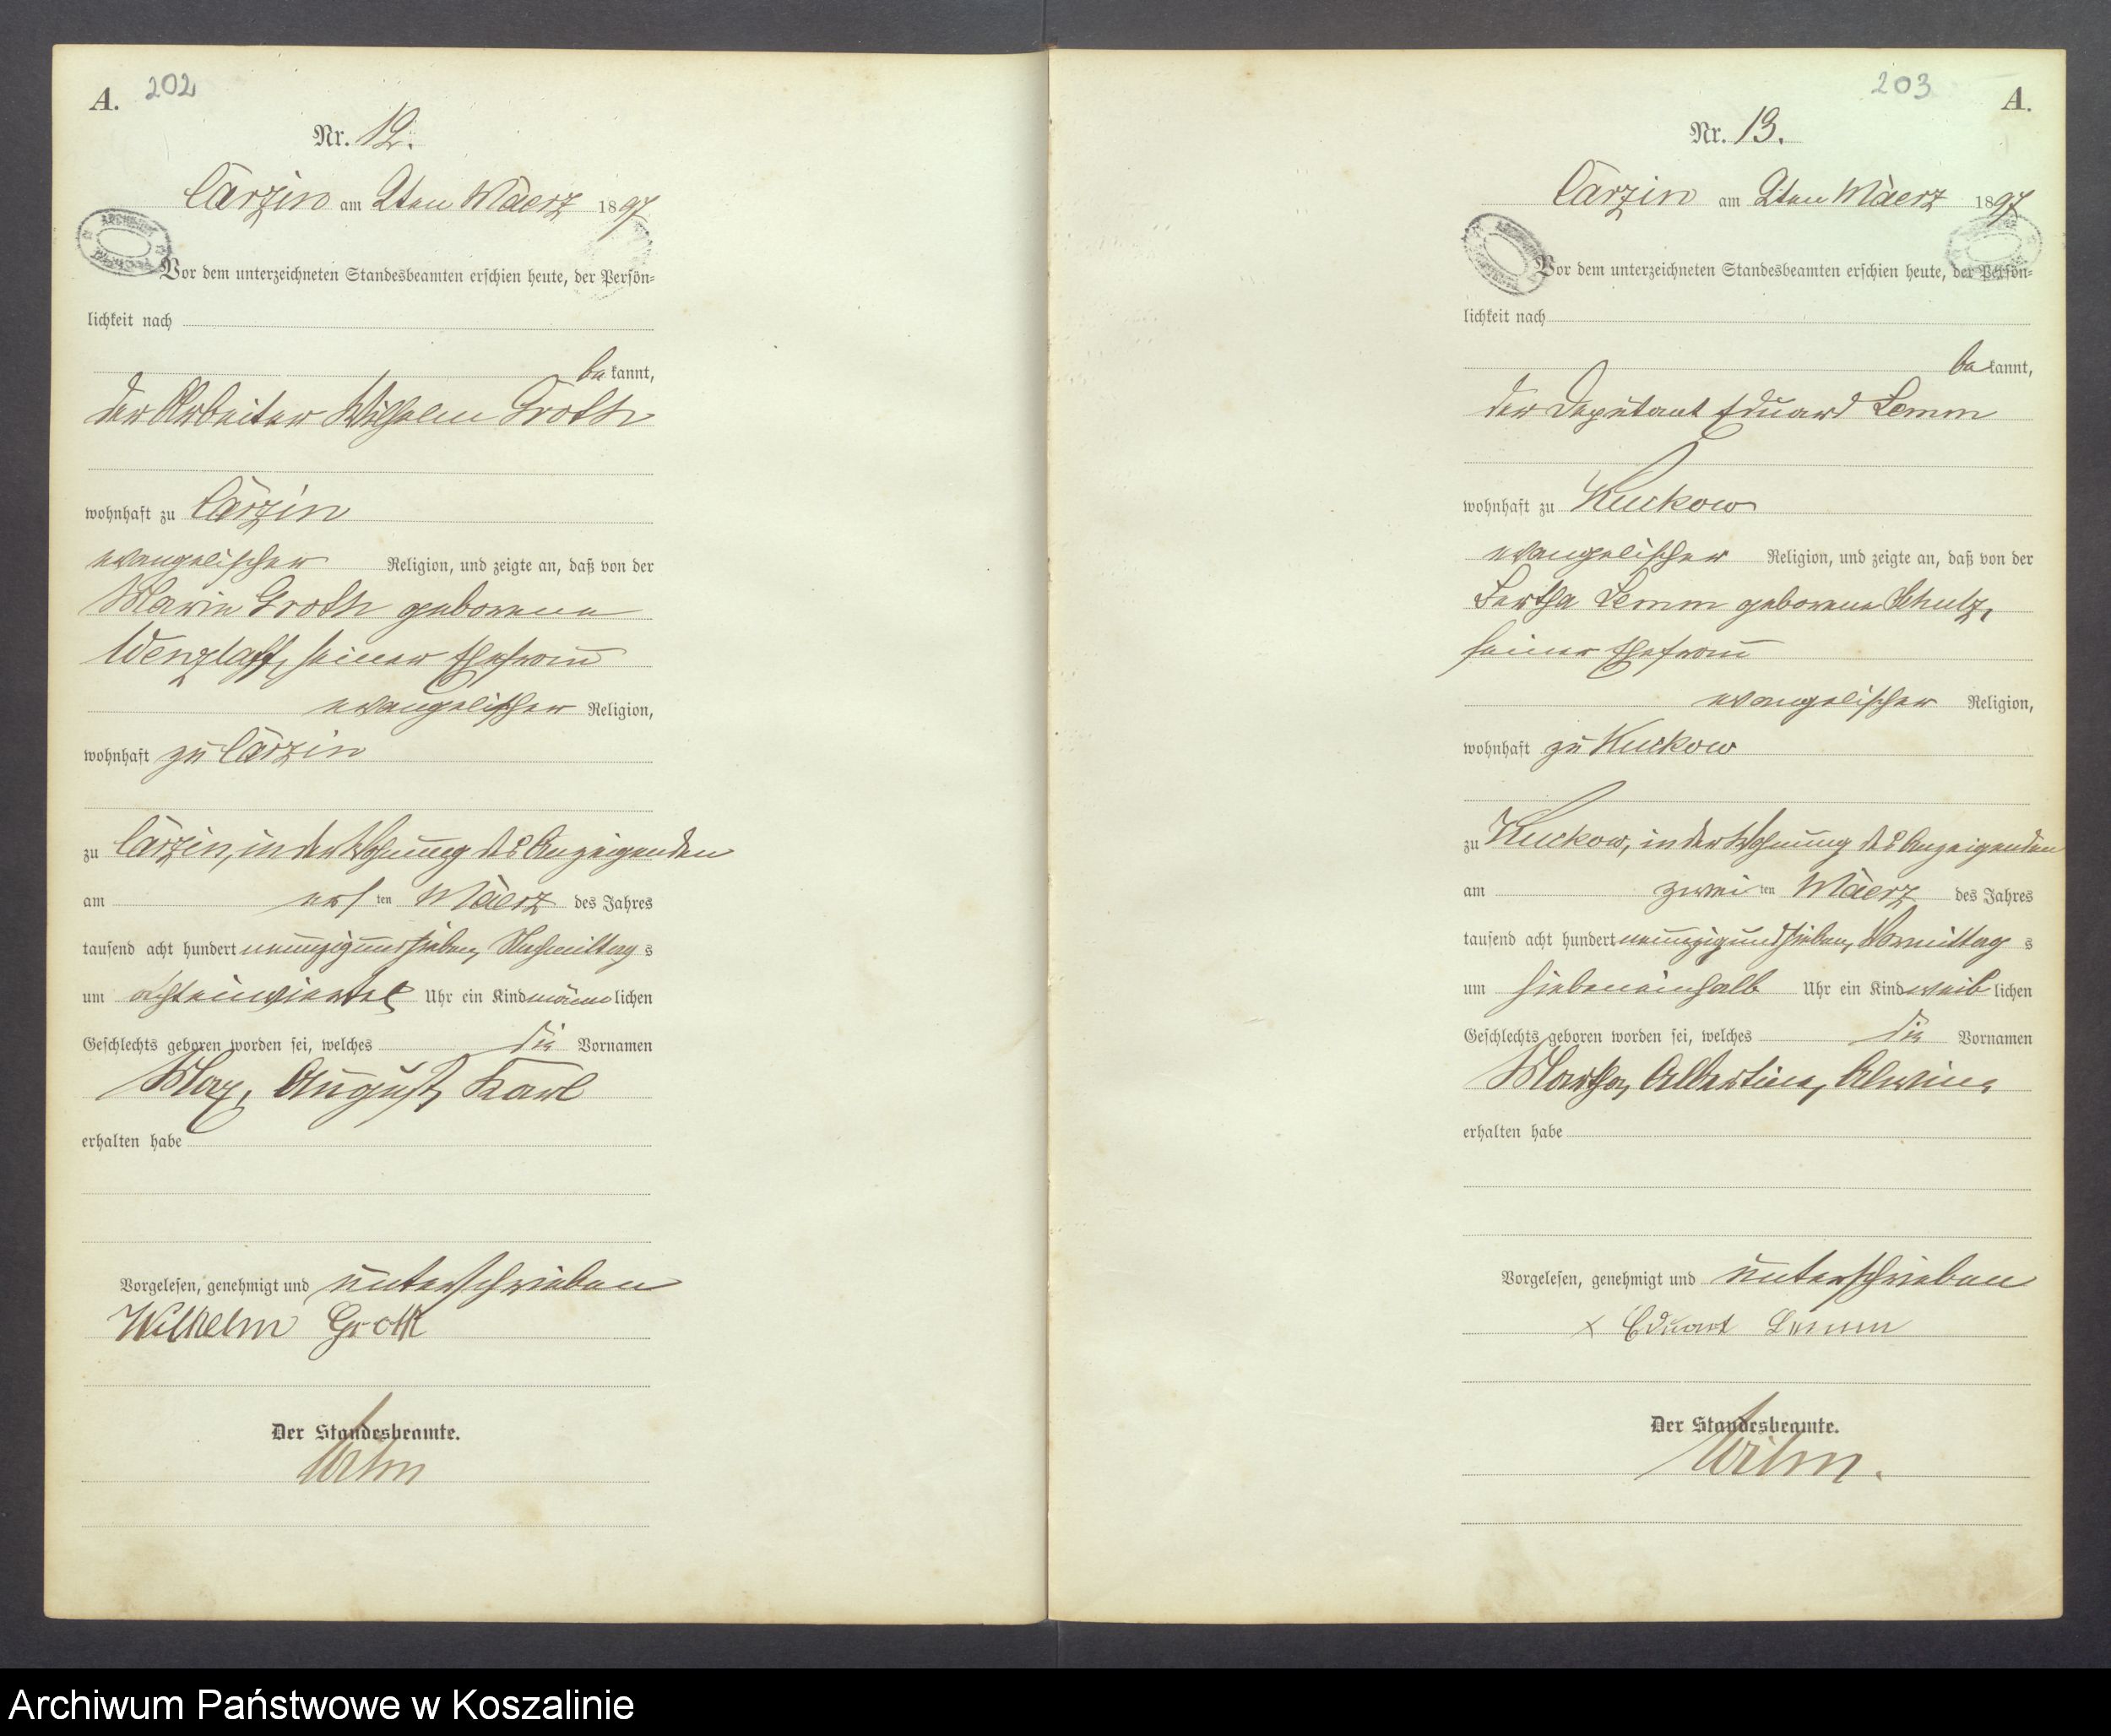 A. 202
Nr. 12.
Carzin am 2ten Maerz 1897
Vor dem unterzeichneten Standesbeamten erschien heute, der Persön=
lichkeit nach
be kannt,
der Arbeiter Wilhelm Groth
wohnhaft zu Carzin
evangelischer Religion, und zeigte an, daß von der
Marie Groth geborene
Wenzlaff, seiner Ehefrau
evangelischer Religion,
wohnhaft zu Carzin
zu Carzin, in der Wohnung des Anzeigenden
am ers ten Maerz des Jahres
tausend acht hundert neunzig und sieben, Nachmittag s
um achteinviertel Uhr ein Kind männ lichen
Geschlechts geboren worden sei, welches die Vornamen
Max, August, Karl
erhalten habe
Vorgelesen, genehmigt und unterschrieben
Wilhelm Groth
Der Standesbeamte.
Wilm
203 A.
Nr. 13.
Carzin am 2ten Maerz 1897
Vor dem unterzeichneten Standesbeamten erschien heute, der Persön=
lichkeit nach
be kannt,
der Deputant Eduard Lemm
wohnhaft zu Kuckow
evangelischer Religion, und zeigte an, daß von der
Bertha Lemm geborene Schulz,
seiner Ehefrau
evangelischer Religion,
wohnhaft zu Kuckow
zu Kuckow, in der Wohnung des Anzeigenden
am zwei ten Maerz des Jahres
tausend acht hundert neunzig und sieben, Vormittag s
um siebeneinhalb Uhr ein Kind weib lichen
Geschlechts geboren worden sei, welches die Vornamen
Martha, Albertine, Alwine
erhalten habe
Vorgelesen, genehmigt und unterschrieben
x Eduart Lemm
Der Standesbeamte.
Wilm.
Archiwum Państwowe w Koszalinie